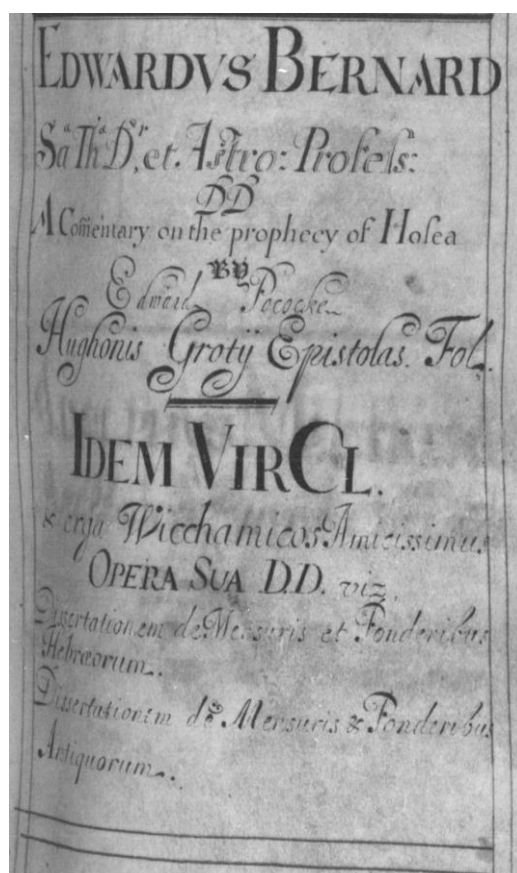 EDWARDVS BERNARD
Sa. Tha. Dr. et. Astro: Profess:
DD
A Comentary on the prophecy of Hosea
BY
Edward Pococke
Hughonis Grotij Epistolas. Fol.
IDEM VIR CL.
& erga Wicchamicos Amicissimus
OPERA SUA D.D. viz.
Dissertationem de Mensuris et Ponderibus
Hebræorum.
Dissertationem de Mensuris & Ponderibus
Antiquorum.